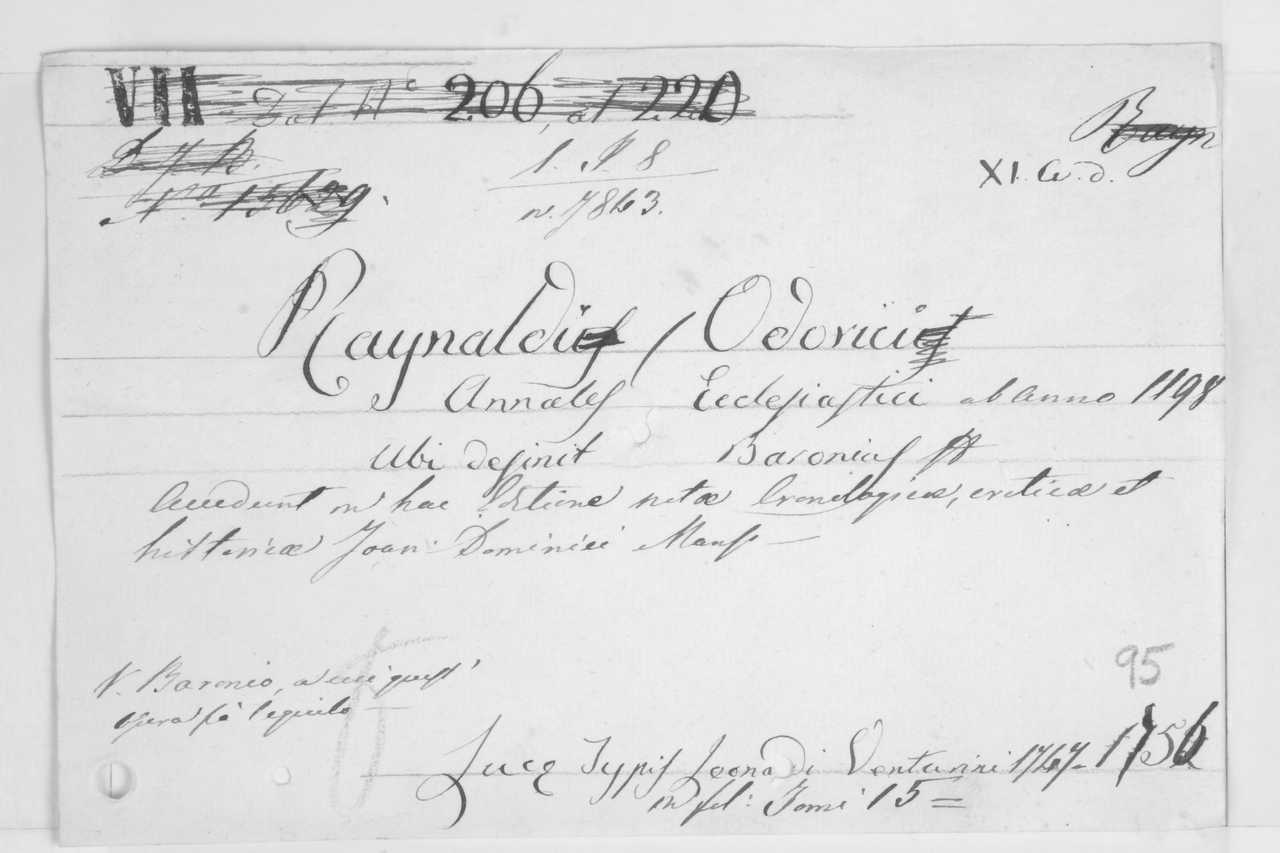 VII Dal N° 206, al 220
Rayn
XI. C. d.
1. P. 8
n. 7863.
Raynaldi / Odorici
Annales Ecclesiastici ab anno 1198
Ubi desinit Baronius
Accedunt in hac Editione notæ Cronologicæ, criticæ et
historicæ Joan: Dominici Mansi —
V. Baronio, a cui quest'
opera fà seguito —
95
Lucę Typis Leonardi Venturini 1747- 1756
in fol: Tomi 15 =